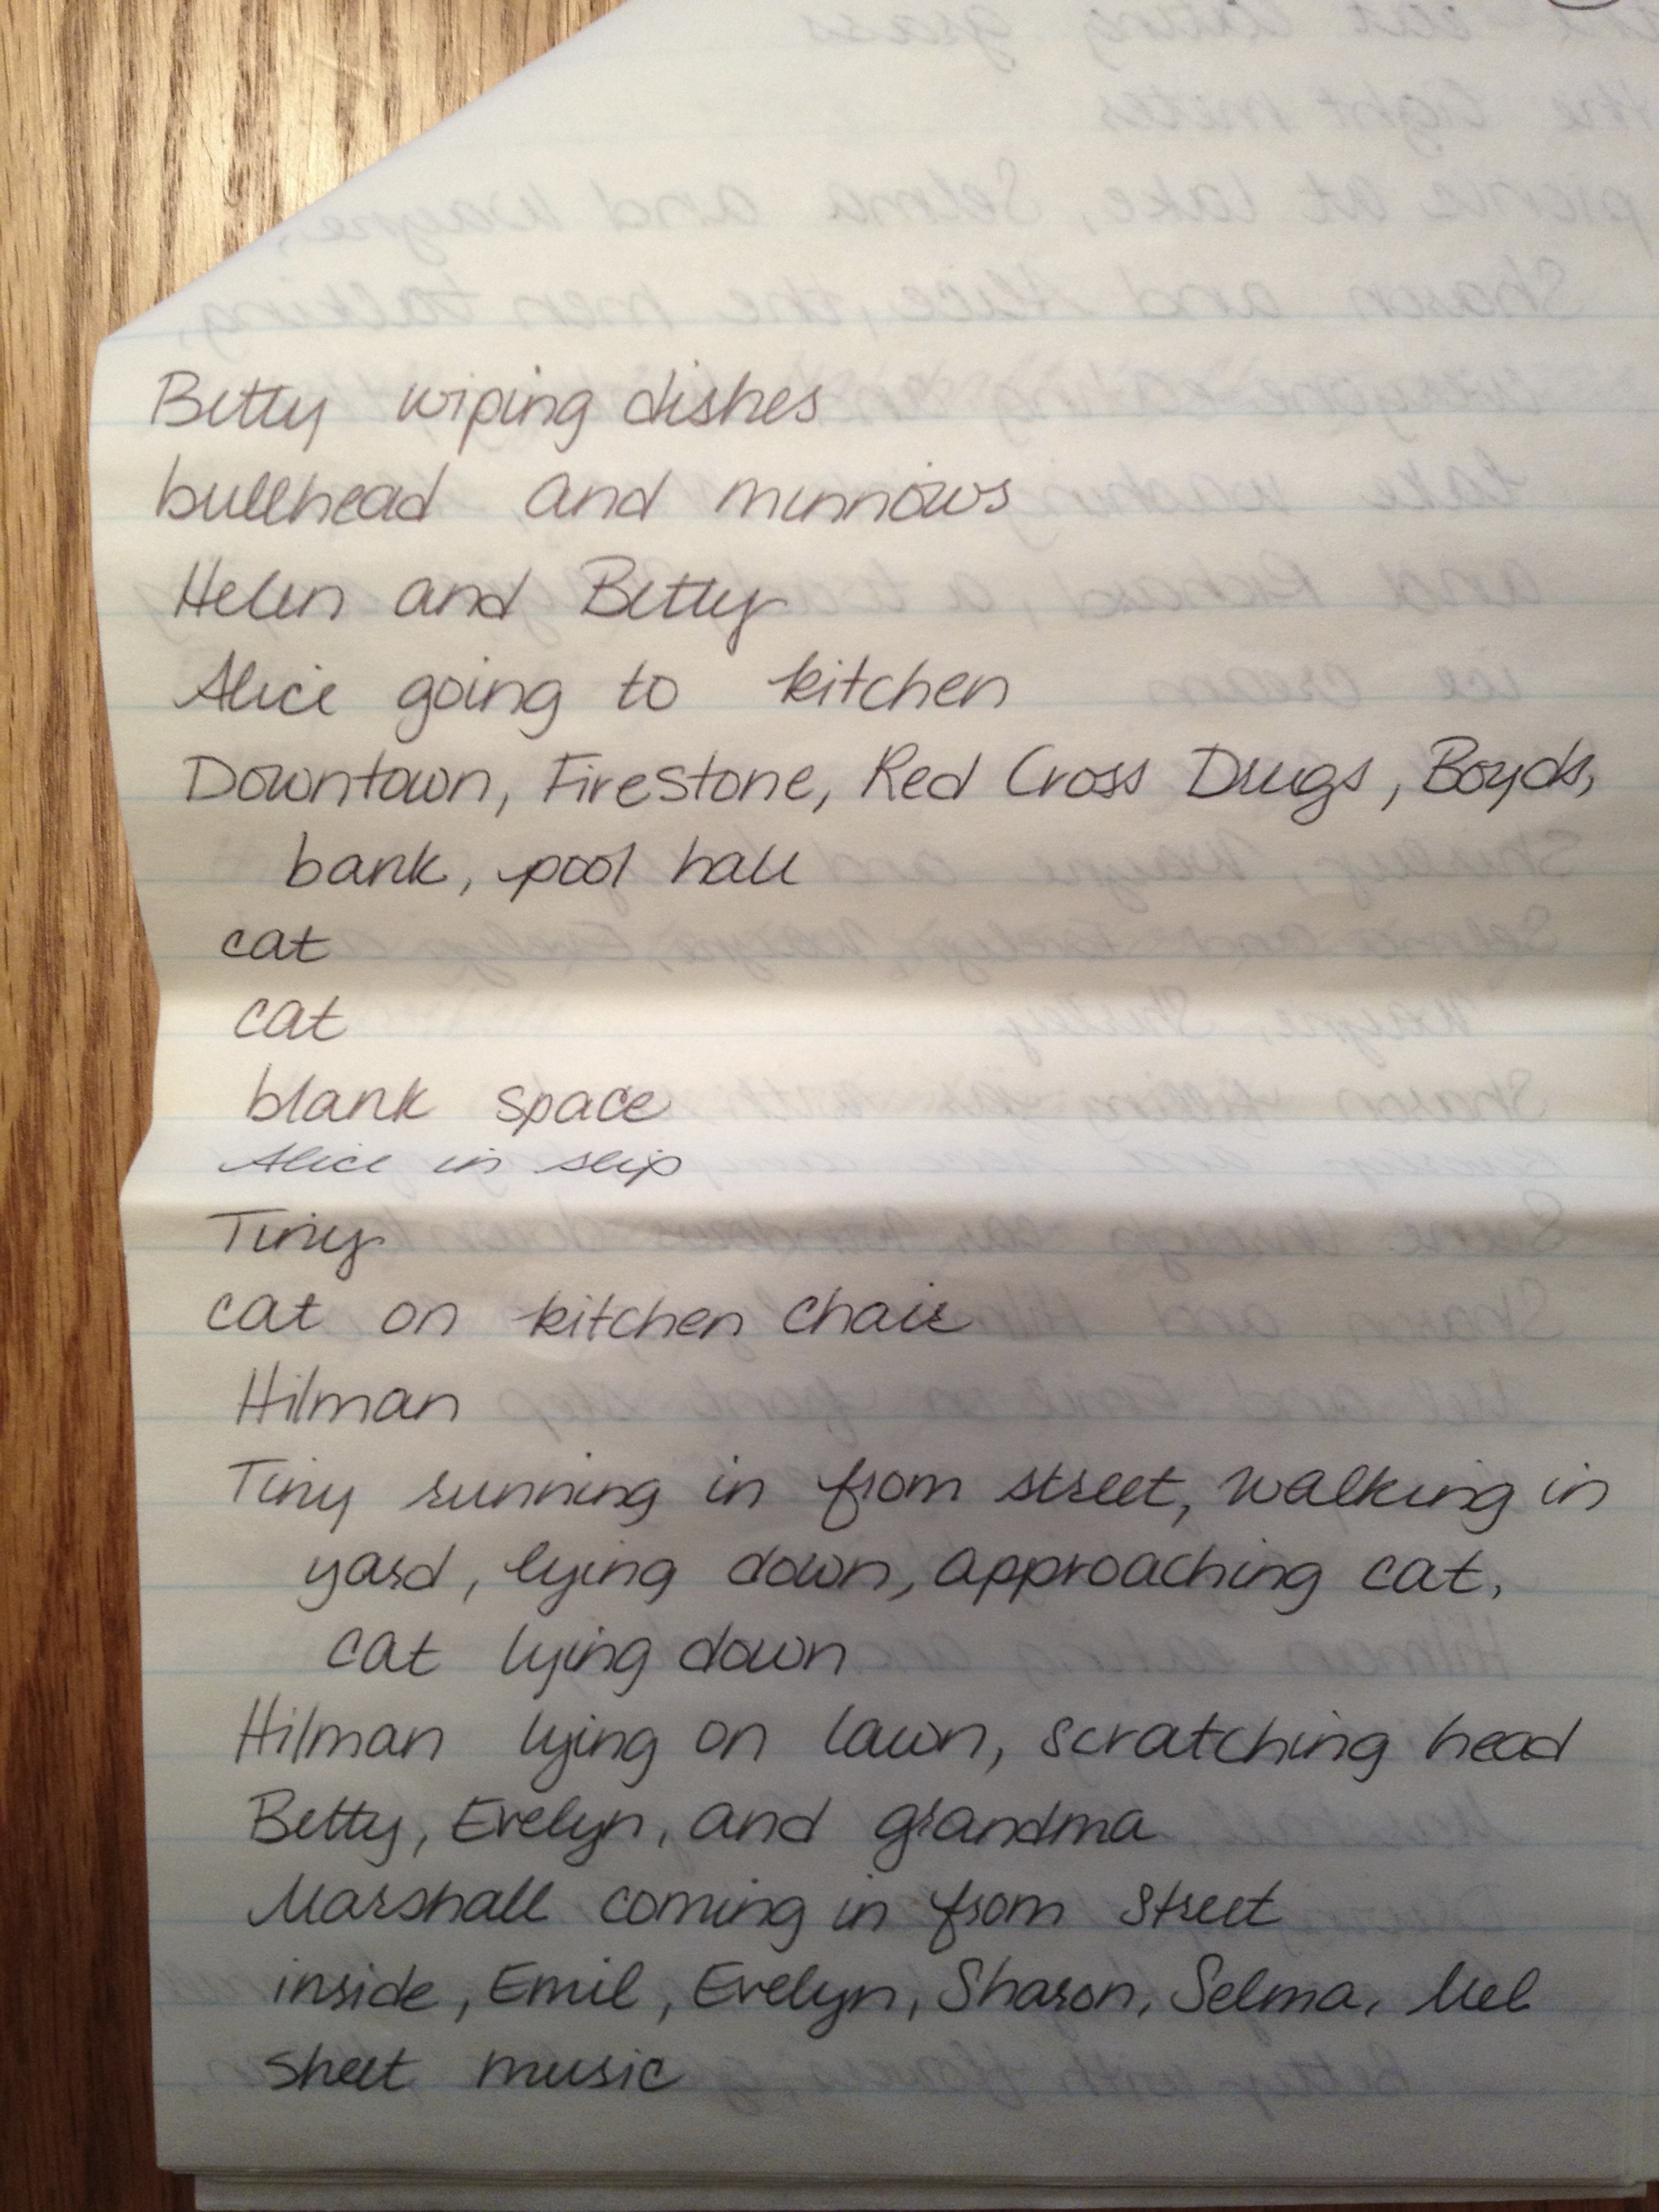 Betty wiping dishes
bullhead and minnows
Helen and Betty
Alice going to kitchen
Downtown, Firestone, Red Cross Drugs, Boyds,
bank, pool hall
cat
cat
blank space
Alice in slip
Tiny
cat on kitchen chair
Hilman
Tiny running in from street, walking in
yard, lying down, approaching cat,
cat lying down
Hilman lying on lawn, scratching head
Betty, Evelyn, and grandma
Marshall coming in from street
inside, Emil, Evelyn, Sharon, Selma, Mel
sheet music